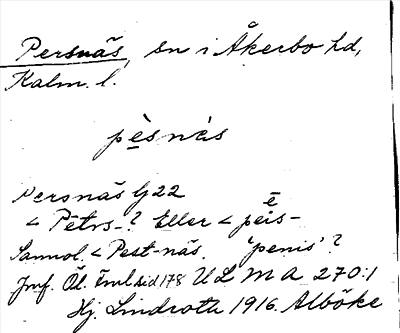 Persnäs, sn i Åkerbo hd,
Kalm. l.
pèsnàs
Persnäs G 22
< Pētrs-? Eller < péis- ē
Sannol. < Pest-näs. 'penis'?
Jmf. Öl. Fml. sid 178 ULMA 270:1
Hj. Lindroth 1916. Alböke